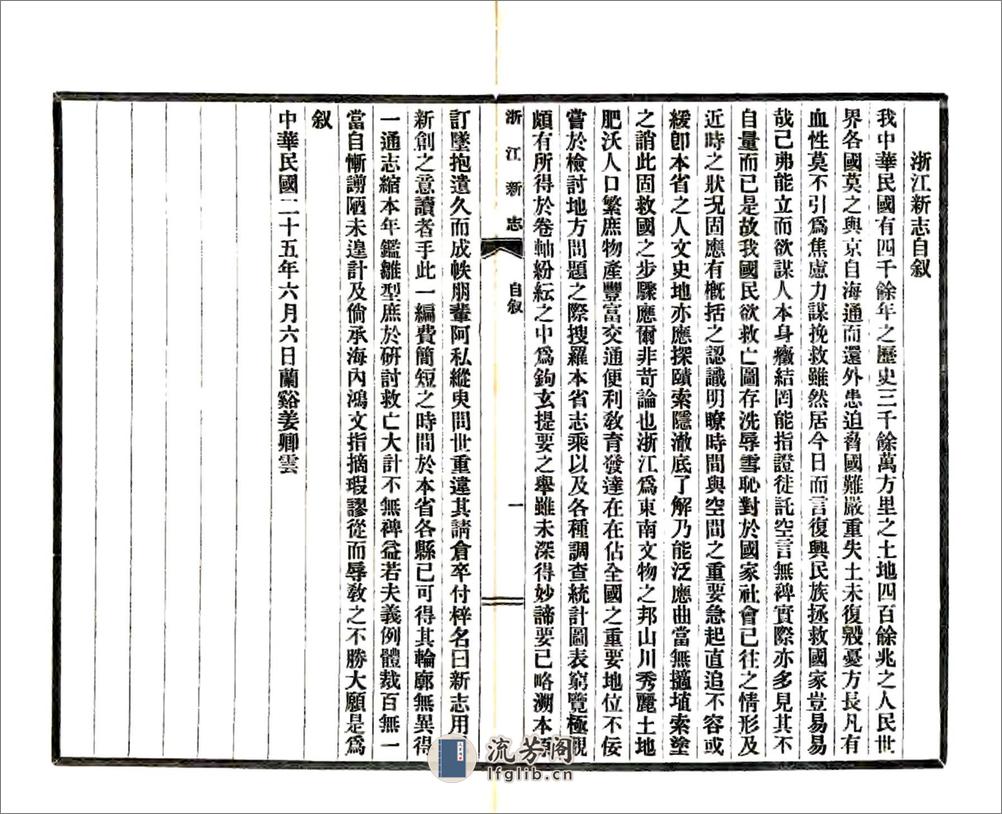 浙江新志自叙
我中華民國有四千餘年之歷史三千餘萬方里之土地四百餘兆之人民世
界各國莫之與京自海通而還外患迫脅國難嚴重失土未復毀憂方長凡有
血性莫不引爲焦慮力謀挽救雖然居今日而言復興民族拯救國家豈易易
哉己弗能立而欲謀人本身癥結罔能指證徒託空言無裨實際亦多見其不
自量而已是故我國民欲救亡圖存洗辱雪恥對於國家社會已往之情形及
近時之狀況固應有概括之認識明瞭時間與空間之重要急起直追不容或
緩卽本省之人文史地亦應探賾索隱澈底了解乃能泛應曲當無擿埴索塗
之誚此固救國之步驟應爾非苛論也浙江爲東南文物之邦山川秀麗土地
肥沃人口繁庶物產豐富交通便利敎育發達在在佔全國之重要地位不佞
嘗於檢討地方問題之際搜羅本省志乘以及各種調查統計圖表窮覽極觀
頗有所得於卷軸紛紜之中爲鉤玄提要之舉雖未深得妙諦要已略溯本源
浙江新志
自叙
一
訂墜抱遺久而成帙朋輩阿私縱臾問世重違其請倉卒付梓名曰新志用示
新創之意讀者手此一編費簡短之時間於本省各縣已可得其輪廓無異得
一通志縮本年鑑雛型庶於研討救亡大計不無裨益若夫義例體裁百無一
當自慚謭陋未遑計及倘承海內鴻文指摘瑕謬從而辱敎之不勝大願是爲
叙
中華民國二十五年六月六日蘭谿姜卿雲
流芳閣
lfglib.cn